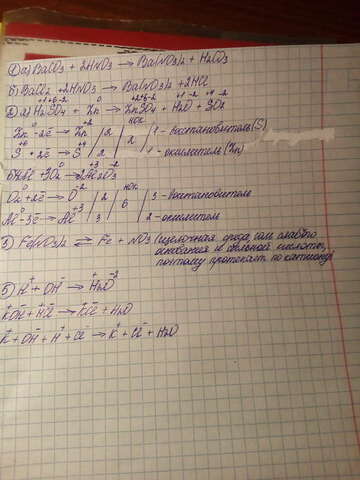 1) а) BaCO3 + 2HNO3 → Ba(NO3)2 + H2CO3
б) BaCl2 + 2HNO3 → Ba(NO3)2 + 2HCl
+1 +6 -2 0 +2 +6 -2 +1 -2 +4 -2
2) а) H2SO4 + Zn → ZnSO4 + H2O + SO2
0 +2 НОК
Zn - 2e → Zn | 2 | 2 | 1 - восстановитель (S)
+6
S + 2e → S | 2 | - окислитель (Zn)
0 0 +3 -2
б) 4Al + 3O2 → 2Al2O3
0 -2 НОК
O2 + 2e → O | 2 | 6 | 3 - восстановитель
0 +3
Al - 3e → Al | 3 | 2 - окислитель
3) Fe(NO3)2 ⇄ Fe + NO3 (щелочная среда, соль слабого
основания и сильной кислоты,
поэтому протекает по катиону)
5) H⁺ + OH⁻ → H2O
KOH + HCl → KCl + H2O
K⁺ + OH⁻ + H⁺ + Cl⁻ → K⁺ + Cl⁻ + H2O